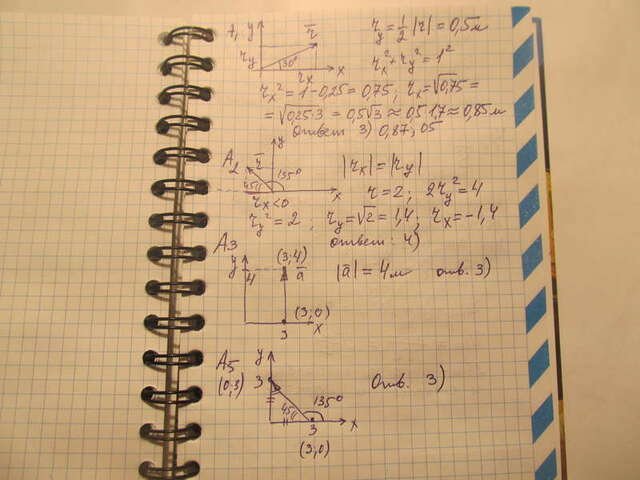 A1 y r̅ r_y 30° r_x x
r_y = 1/2 |r| = 0,5 м
r_x² + r_y² = 1²
r_x² = 1 - 0,25 = 0,75 ; r_x = √0,75 =
= √0,25·3 = 0,5√3 ≈ 0,5·1,7 ≈ 0,85 м
Ответ 3) 0,87; 05
A2 y r̅ 135° 45° x
|r_x| = |r_y|
r_x < 0 r = 2 ; 2r_y² = 4
r_y² = 2 ; r_y = √2 = 1,4 ; r_x = -1,4
ответ : 4)
A3
y 4 (3,4) a̅ |a̅| = 4 м отв. 3)
(3,0)
3 x
A5 y
(0,3) 3 135° 45° Отв. 3)
3 x
(3,0)